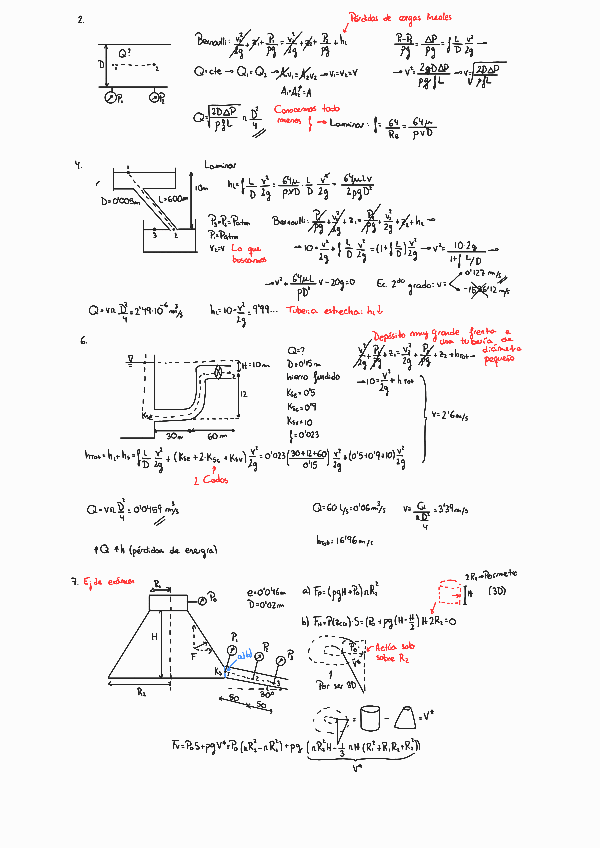 2.
Pérdidas de cargas lineales
Q?
D
1
2
P₁
P₂
Bernoulli: v₁²/2g + z₁ + P₁/ρg = v₂²/2g + z₂ + P₂/ρg + hL
(P₁-P₂)/ρg = ΔP/ρg = f L/D v²/2g →
Q=cte → Q₁=Q₂ → A₁v₁=A₂v₂ → v₁=v₂=v
A₁=A₂=A
→ v² = 2gDΔP/ρgfL → v = √(2DΔP/ρfL)
Q = √(2DΔP/ρfL) π D²/4
Conocemos todo
menos f → Laminar: f = 64/Re = 64μ/ρvD
4.
Laminar
D=0'005m
L=600m
10m
3
2
hL = f L/D v²/2g = 64μ/ρvD · L/D v²/2g = 64μLv/2ρgD²
P₃=P₂=Patm
P₁=Patm
v₂=v
Lo que
buscamos
Bernoulli: P₁/ρg + v₁²/2g + z₁ = P₂/ρg + v₂²/2g + z₂ + hL →
→ 10 = v²/2g + f L/D v²/2g = (1+f L/D) v²/2g → v² = 10·2g/(1+f L/D) →
→ v² + 64μL/ρD² v - 20g = 0
Ec. 2do grado: v =
0'127 m/s
Q = vπ D²/4 = 2'49·10⁻⁶ m³/s
hL = 10 - v²/2g = 9'99...
Tubería estrecha: hL↓
6.
Depósito muy grande frente a
una tubería de
diámetro
pequeño
H=10m
12
30m
60m
Kse
Q=?
D=0'15m
hierro fundido
Kse=0'5
Ksc=0'9
Ksv=10
f=0'023
v₁²/2g + P₁/ρg + z₁ = v₂²/2g + P₂/ρg + z₂ + hTot →
→ 10 = v²/2g + hTot
v=2'6m/s
hTot = hL + hs = f L/D v²/2g + (Kse+2·Ksc+Ksv) v²/2g = 0'023 ((30+12+60)/0'15) v²/2g + (0'5+0'9+10) v²/2g
2 Codos
Q = vπ D²/4 = 0'0459 m³/s
Q=60 L/s=0'06m³/s
v = Q/(πD²/4) = 3'39m/s
↑Q ↑h (pérdidas de energía)
hTot=16'96m/s
7. Ej de exámen
R₁
P₀
H
R₂
F
P₁
P₂
P₃
Ks
2
3
30°
50
50
e=0'046m
D=0'02m
a) Fp = (ρgH+P₀)πR₂²
2R₂→Perímetro
H
(3D)
b) FH = P(zcg)·S = (P₀+ρg(H-H/2))H·2R₂ = 0
P₀
V*
Actúa solo
sobre R₂
Por ser 3D
= - = V*
Fv = P₀S+ρgV* = P₀(πR₂²-πR₁²)+ρg(πR₂²H - 1/3 πH(R₁²+R₁R₂+R₂²))
V*